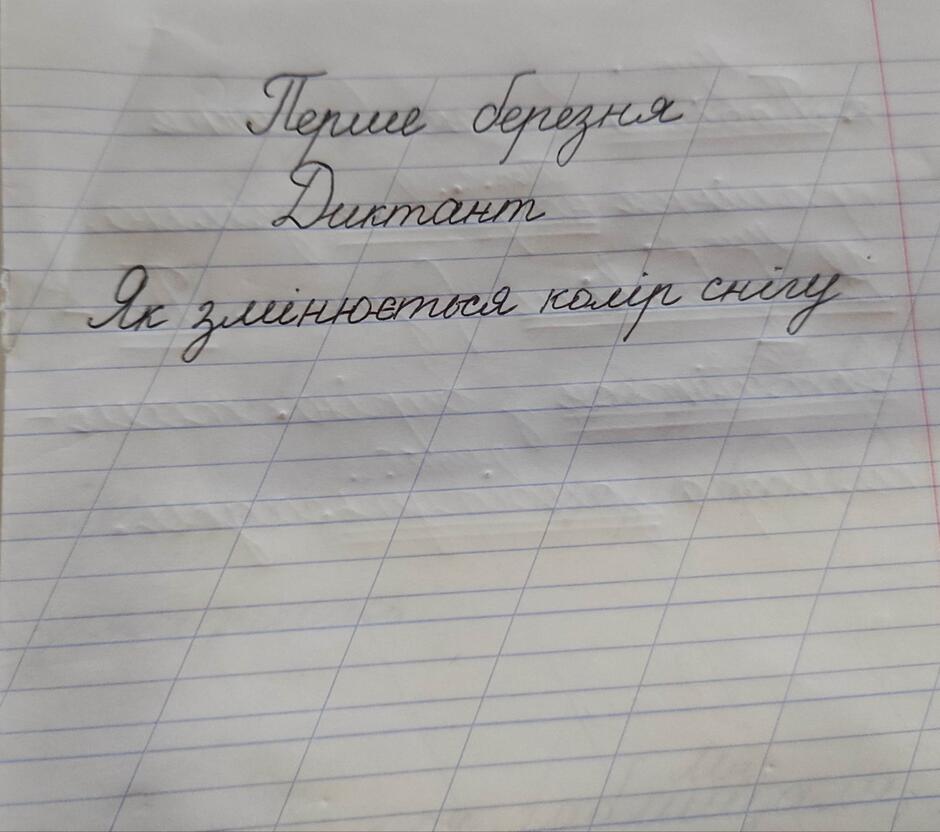 Перше березня
Диктант
Як змінюється колір снігу